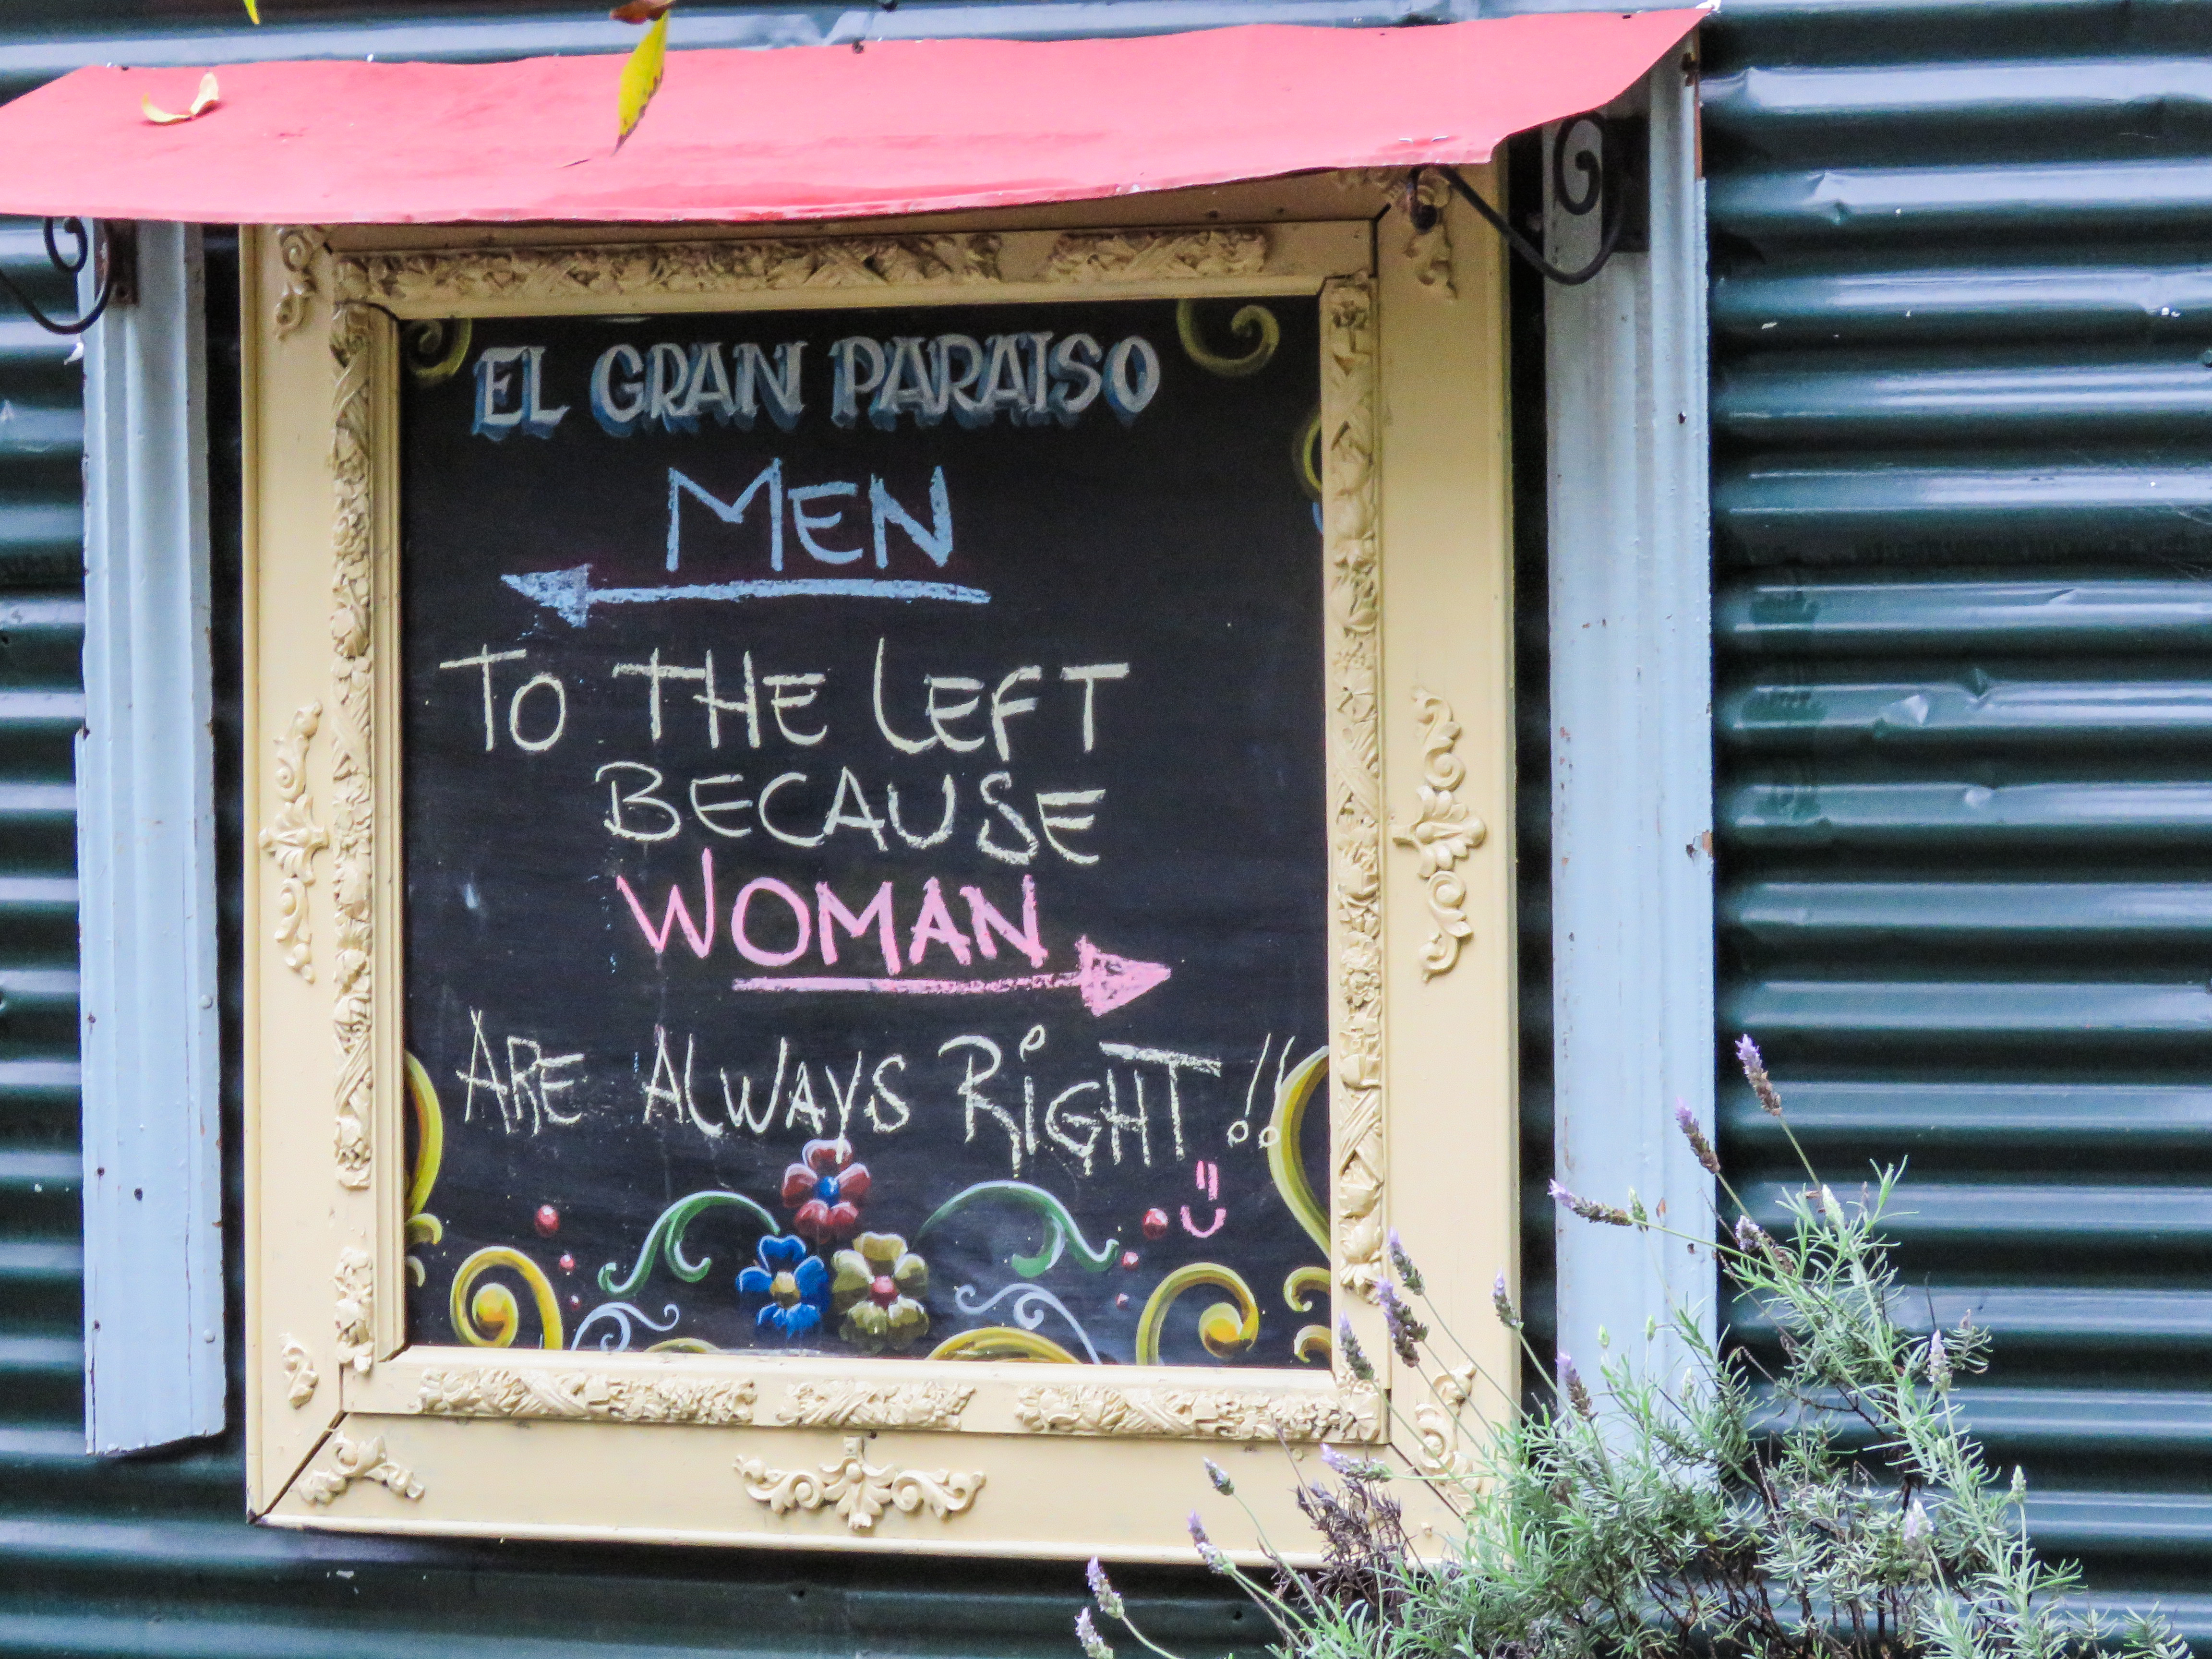 EL GRAN PARAISO
MEN
TO THE LEFT
BECAUSE
WOMAN
ARE ALWAYS RiGHT!!